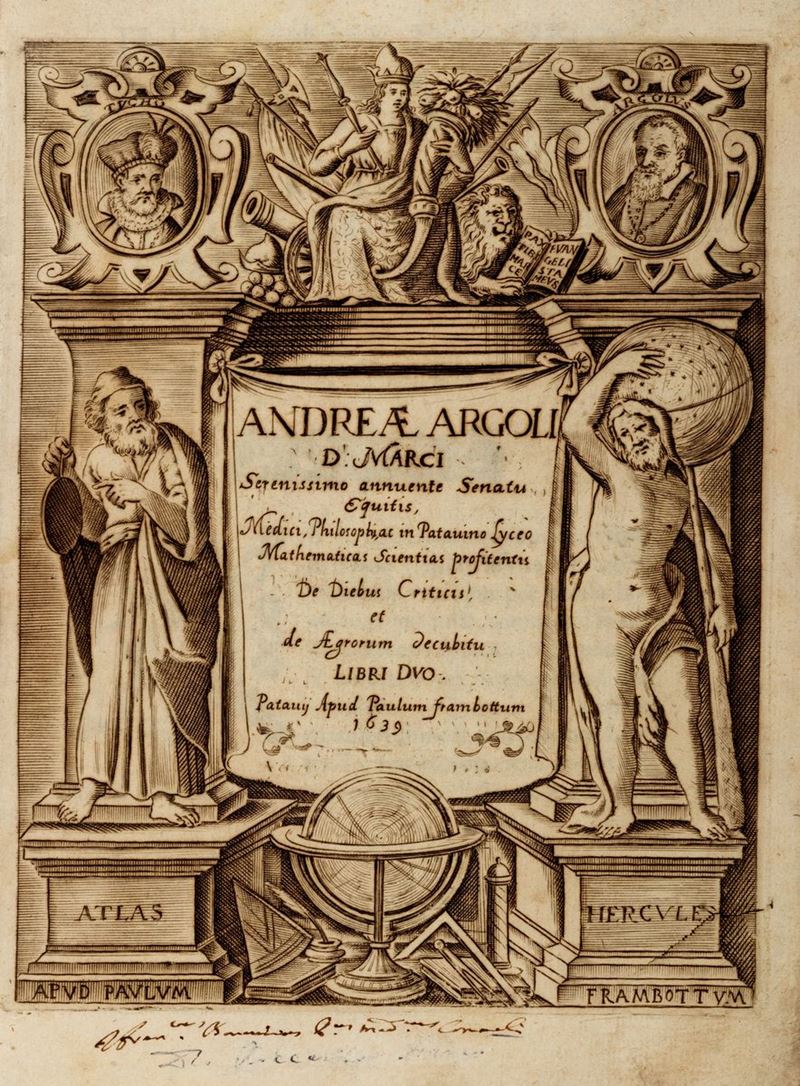 TYCHO
ARGOLVS
PAX
TIBI
MAR
CE
EVAN
GELI
STA
MEVS
ANDREÆ ARGOLI
D: MARCI
Serenissimo annuente Senatu
Equitis,
Medici, Philosophi, ac in Patauino Lyceo
Mathematicas Scientias profitentis
De Diebus Criticis,
et
de Ægrorum decubitu
LIBRI DVO.
Patauij Apud Paulum frambottum
1639
ATLAS
HERCVLES
APVD PAVLVM
FRAMBOTTVM